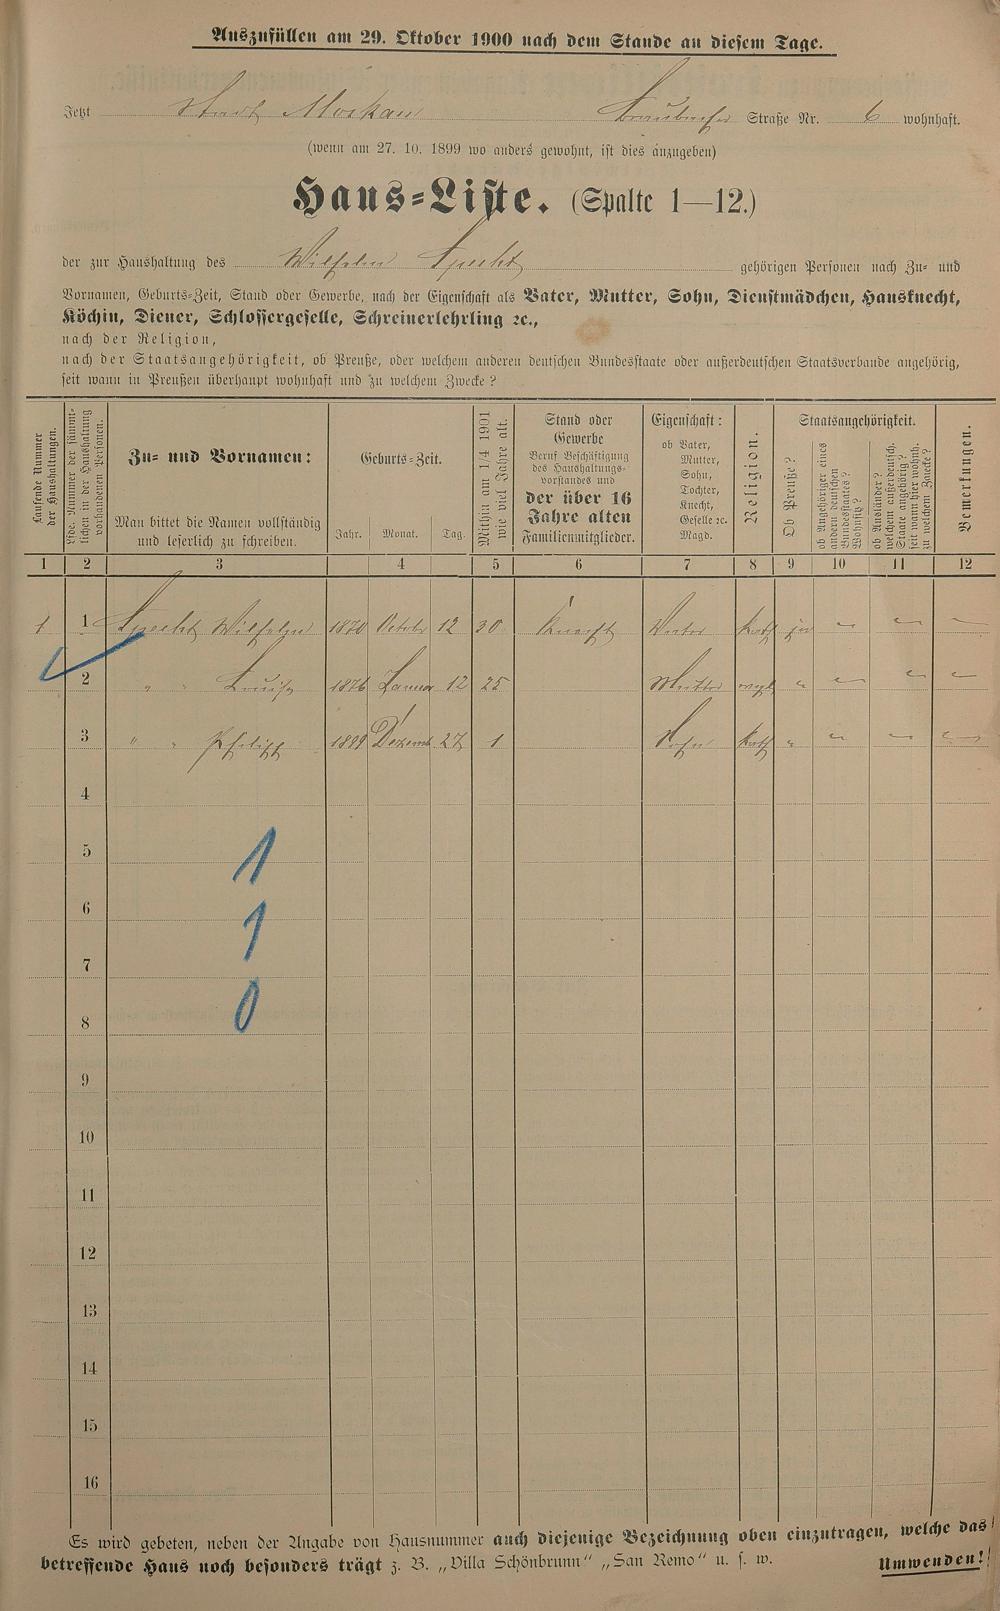 Auszufüllen am 29. Oktober 1900 nach dem Stande an diesem Tage.
Jetzt Stadt Moskau Braubacher Straße Nr. 6 wohnhaft.
(wenn am 27. 10. 1899 wo anders gewohnt, ist dies anzugeben)
Haus-Liste. (Spalte 1—12.)
der zur Haushaltung des Wilhelm Specht gehörigen Personen nach Zu- und
Vornamen, Geburts-Zeit, Stand oder Gewerbe, nach der Eigenschaft als Vater, Mutter, Sohn, Dienstmädchen, Hausknecht,
Köchin, Diener, Schlossergeselle, Schreinerlehrling ꝛc.,
nach der Religion,
nach der Staatsangehörigkeit, ob Preuße, oder welchem anderen deutschen Bundesstaate oder außerdeutschen Staatsverbande angehörig,
seit wann in Preußen überhaupt wohnhaft und zu welchem Zwecke?
Laufende Nummer
der Haushaltungen.
Lfde. Nummer der sämmt-
lichen in der Haushaltung
vorhandenen Personen.
Zu- und Vornamen:
Man bittet die Namen vollständig
und leserlich zu schreiben.
Geburts-Zeit.
Jahr. Monat. Tag.
Mithin am 1/4 1901
wie viel Jahre alt.
Stand oder
Gewerbe
Beruf Beschäftigung
des Haushaltungs-
vorstandes und
der über 16
Jahre alten
Familienmitglieder.
Eigenschaft:
ob Vater,
Mutter,
Sohn,
Tochter,
Knecht,
Geselle ꝛc.
Magd.
Religion.
Staatsangehörigkeit.
Ob Preuße?
ob Angehöriger eines
andern deutschen
Bundesstaates?
Wohnsitz?
ob Ausländer?
welchem außerdeutsch.
Staate angehörig?
seit wann hier wohnh.
zu welchem Zwecke?
Bemerkungen.
1 2 3 4 5 6 7 8 9 10 11 12
1 1 Specht Wilhelm 1870 October 12 30 Knecht Vater kath ja " " "
2 " " Louise 1876 Januar 12 25 Mutter evgl " " " "
3 " " Philipp 1899 Dezemb 27 1 Sohn kath " " " "
4
5
1
6
1
7
8
0
9
10
11
12
13
14
15
16
Es wird gebeten, neben der Angabe von Hausnummer auch diejenige Bezeichnung oben einzutragen, welche das
betreffende Haus noch besonders trägt z. B. „Villa Schönbrunn“ „San Remo“ u. s. w. Umwenden!